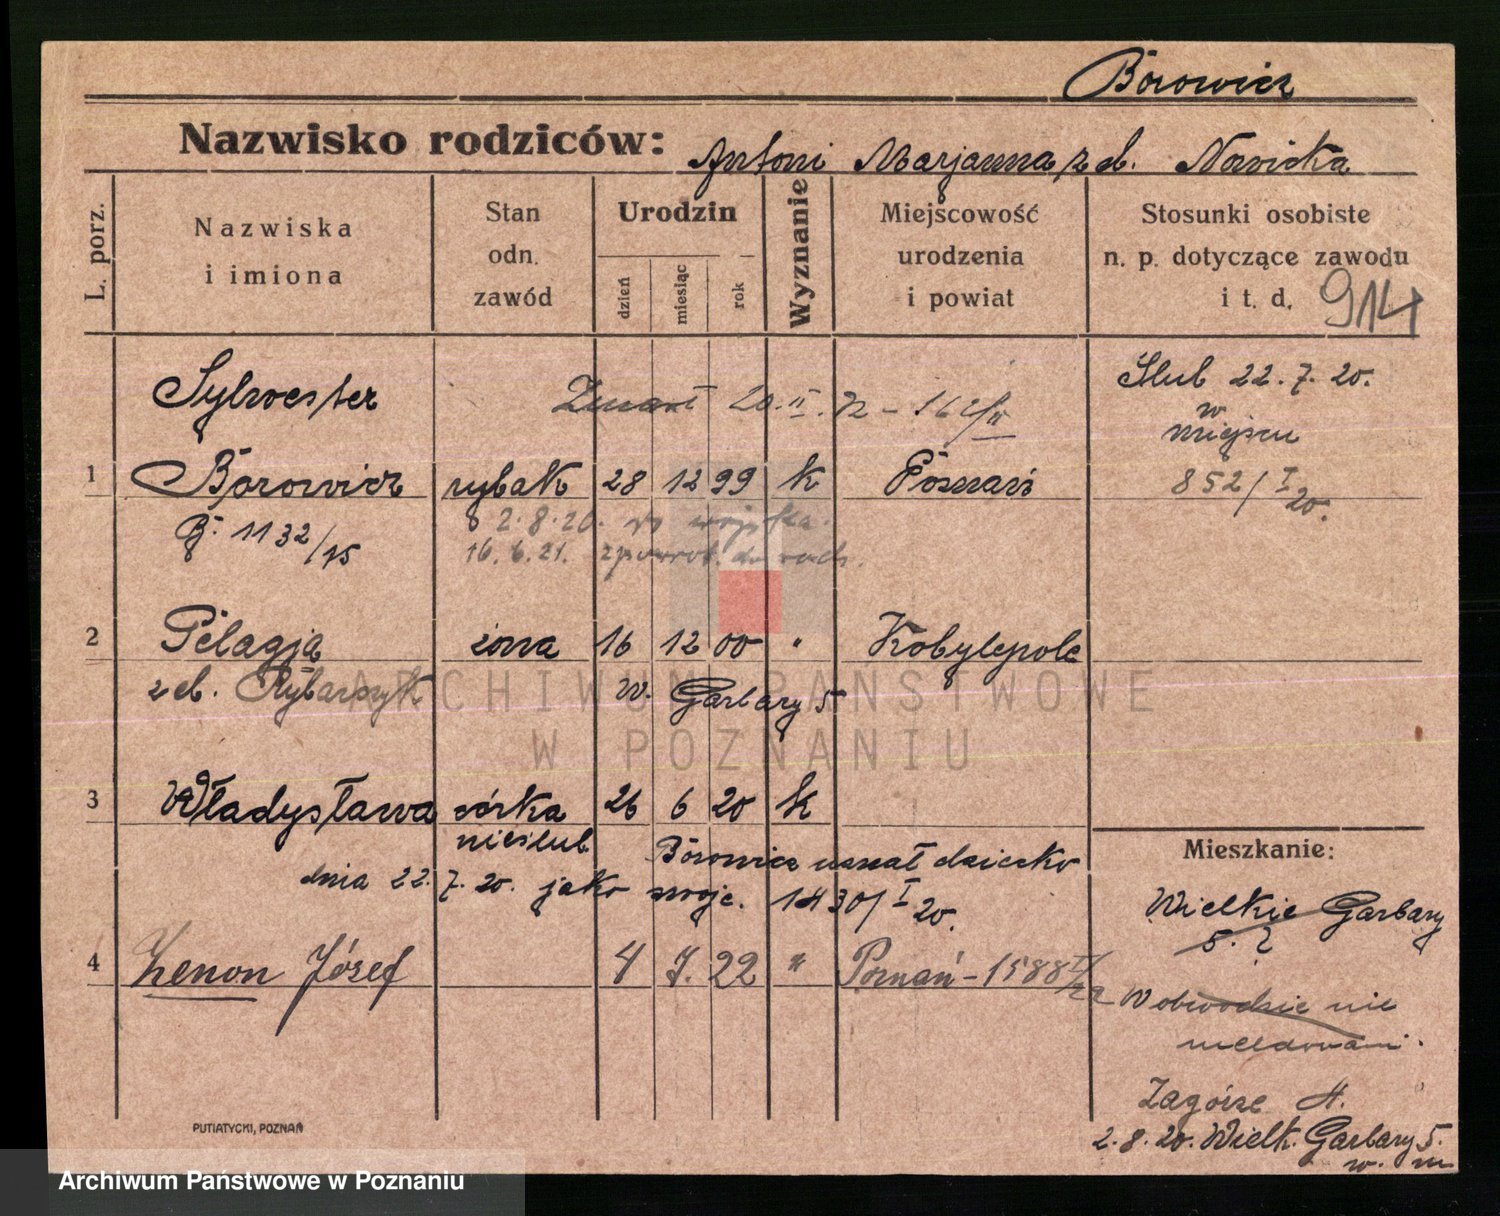 Borowicz
Nazwisko rodziców: Antoni Marjanna z d. Nowicka
L. porz.
Nazwiska
i imiona
Stan
odn.
zawód
Urodzin
dzień
miesiąc
rok
Wyznanie
Miejscowość
urodzenia
i powiat
Stosunki osobiste
n. p. dotyczące zawodu
i t. d.
914
Sylwester
Zmarł 20.II.72 - 162/II
Ślub 22.7.20.
w
miejscu
1 Borowicz rybak 28 12 99 k Poznań
852/I 20.
B. 1132/15
2.8.20. do wojska.
16.6.21. z powrot. do
2 Pelagja żona 16 12 00 " Kobylepole
z d. Rybarczyk W. Garbary 5
ARCHIWUM PAŃSTWOWE
W POZNANIU
3 Władysława córka 26 6 20 k
nieślub. Borowicz uznał dziecko
dnia 22.7.20. jako swoje. 1430/I 20.
Mieszkanie:
Wielkie Garbary
5. ?
4 Zenon Józef 4 7. 22 " Poznań - 1588 I/22
W obwodzie nie
meldowani.
Zagórze 4.
2.8.20. Wielk. Garbary 5.
w. m
PUTIATYCKI, POZNAŃ
Archiwum Państwowe w Poznaniu